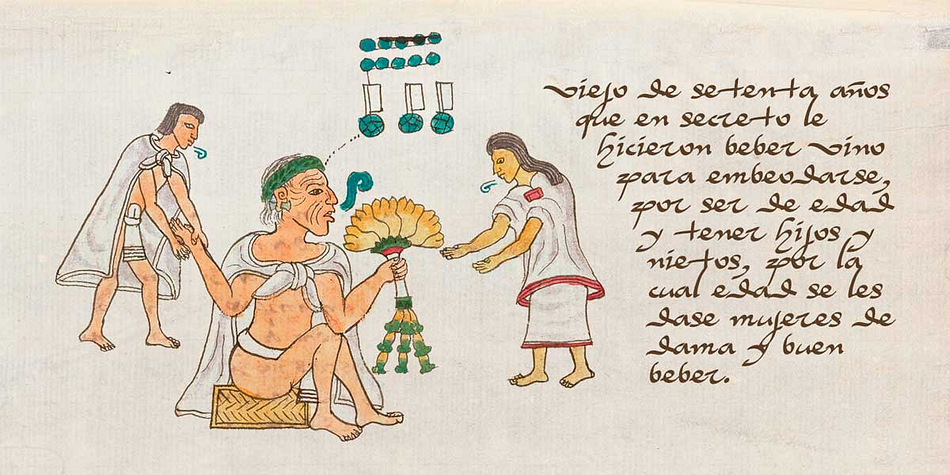 viejo de setenta años
que en secreto le
hicieron beber vino
para embeodarse,
por ser de edad
y tener hijos y
nietos, por la
cual edad se les
dase mujeres de
dama y buen
beber.